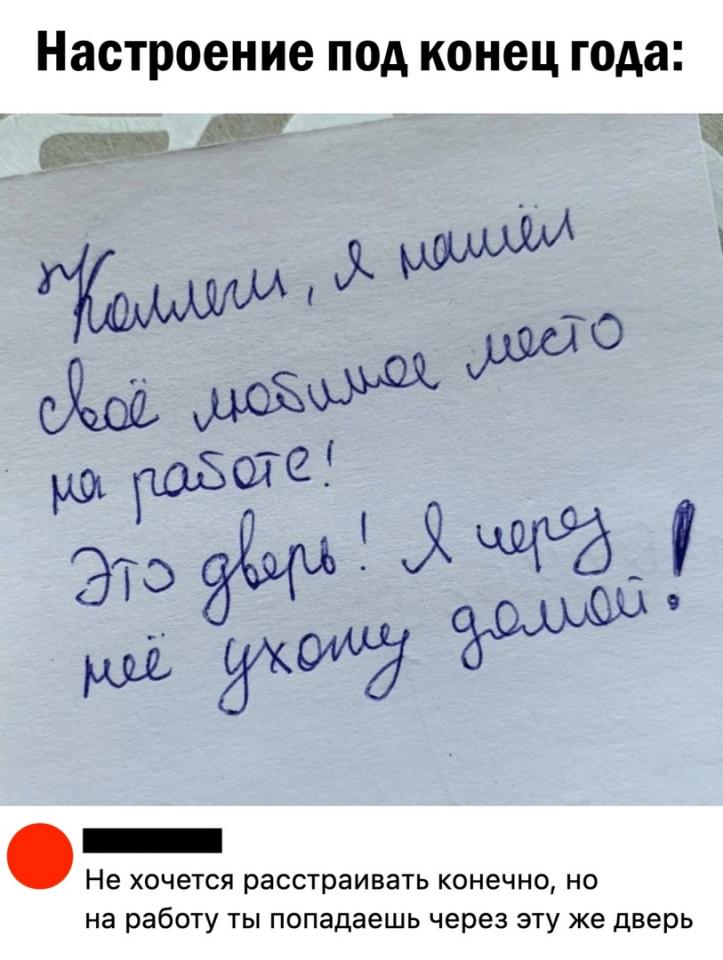 Настроение под конец года:
Коллеги, я нашёл
своё любимое место
на работе!
Это дверь! Я через
неё ухожу домой!
Не хочется расстраивать конечно, но
на работу ты попадаешь через эту же дверь